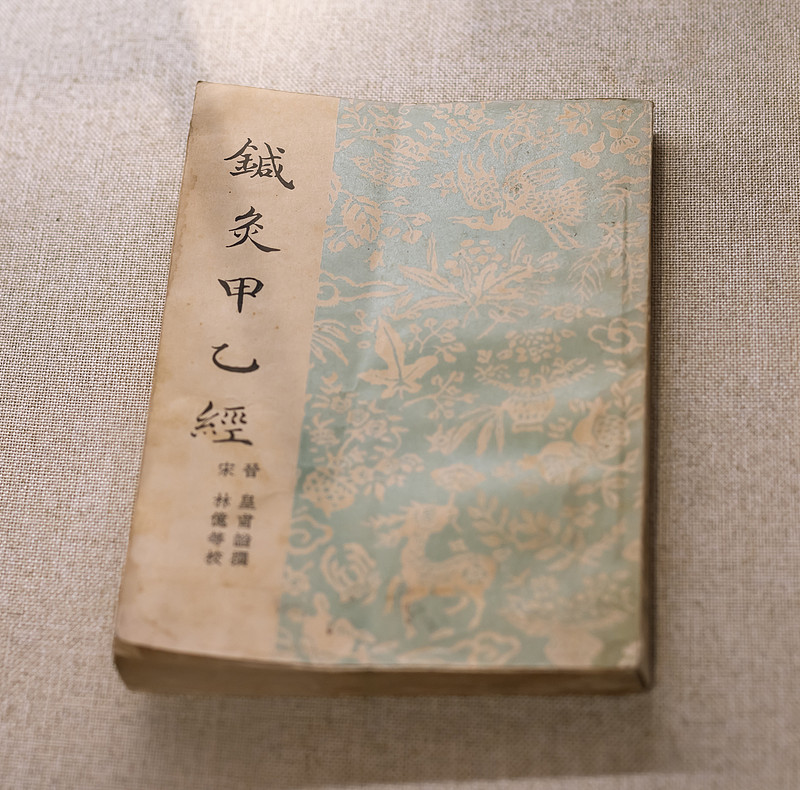 鍼灸甲乙經
晉 皇甫謐撰
宋 林億等校